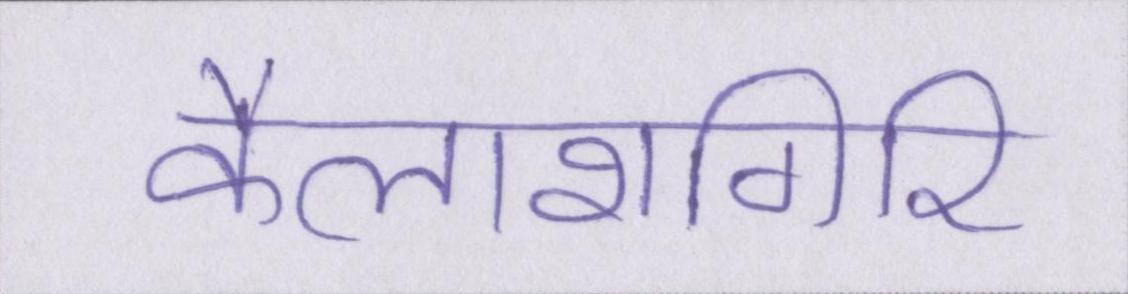 कैलाशगिरि